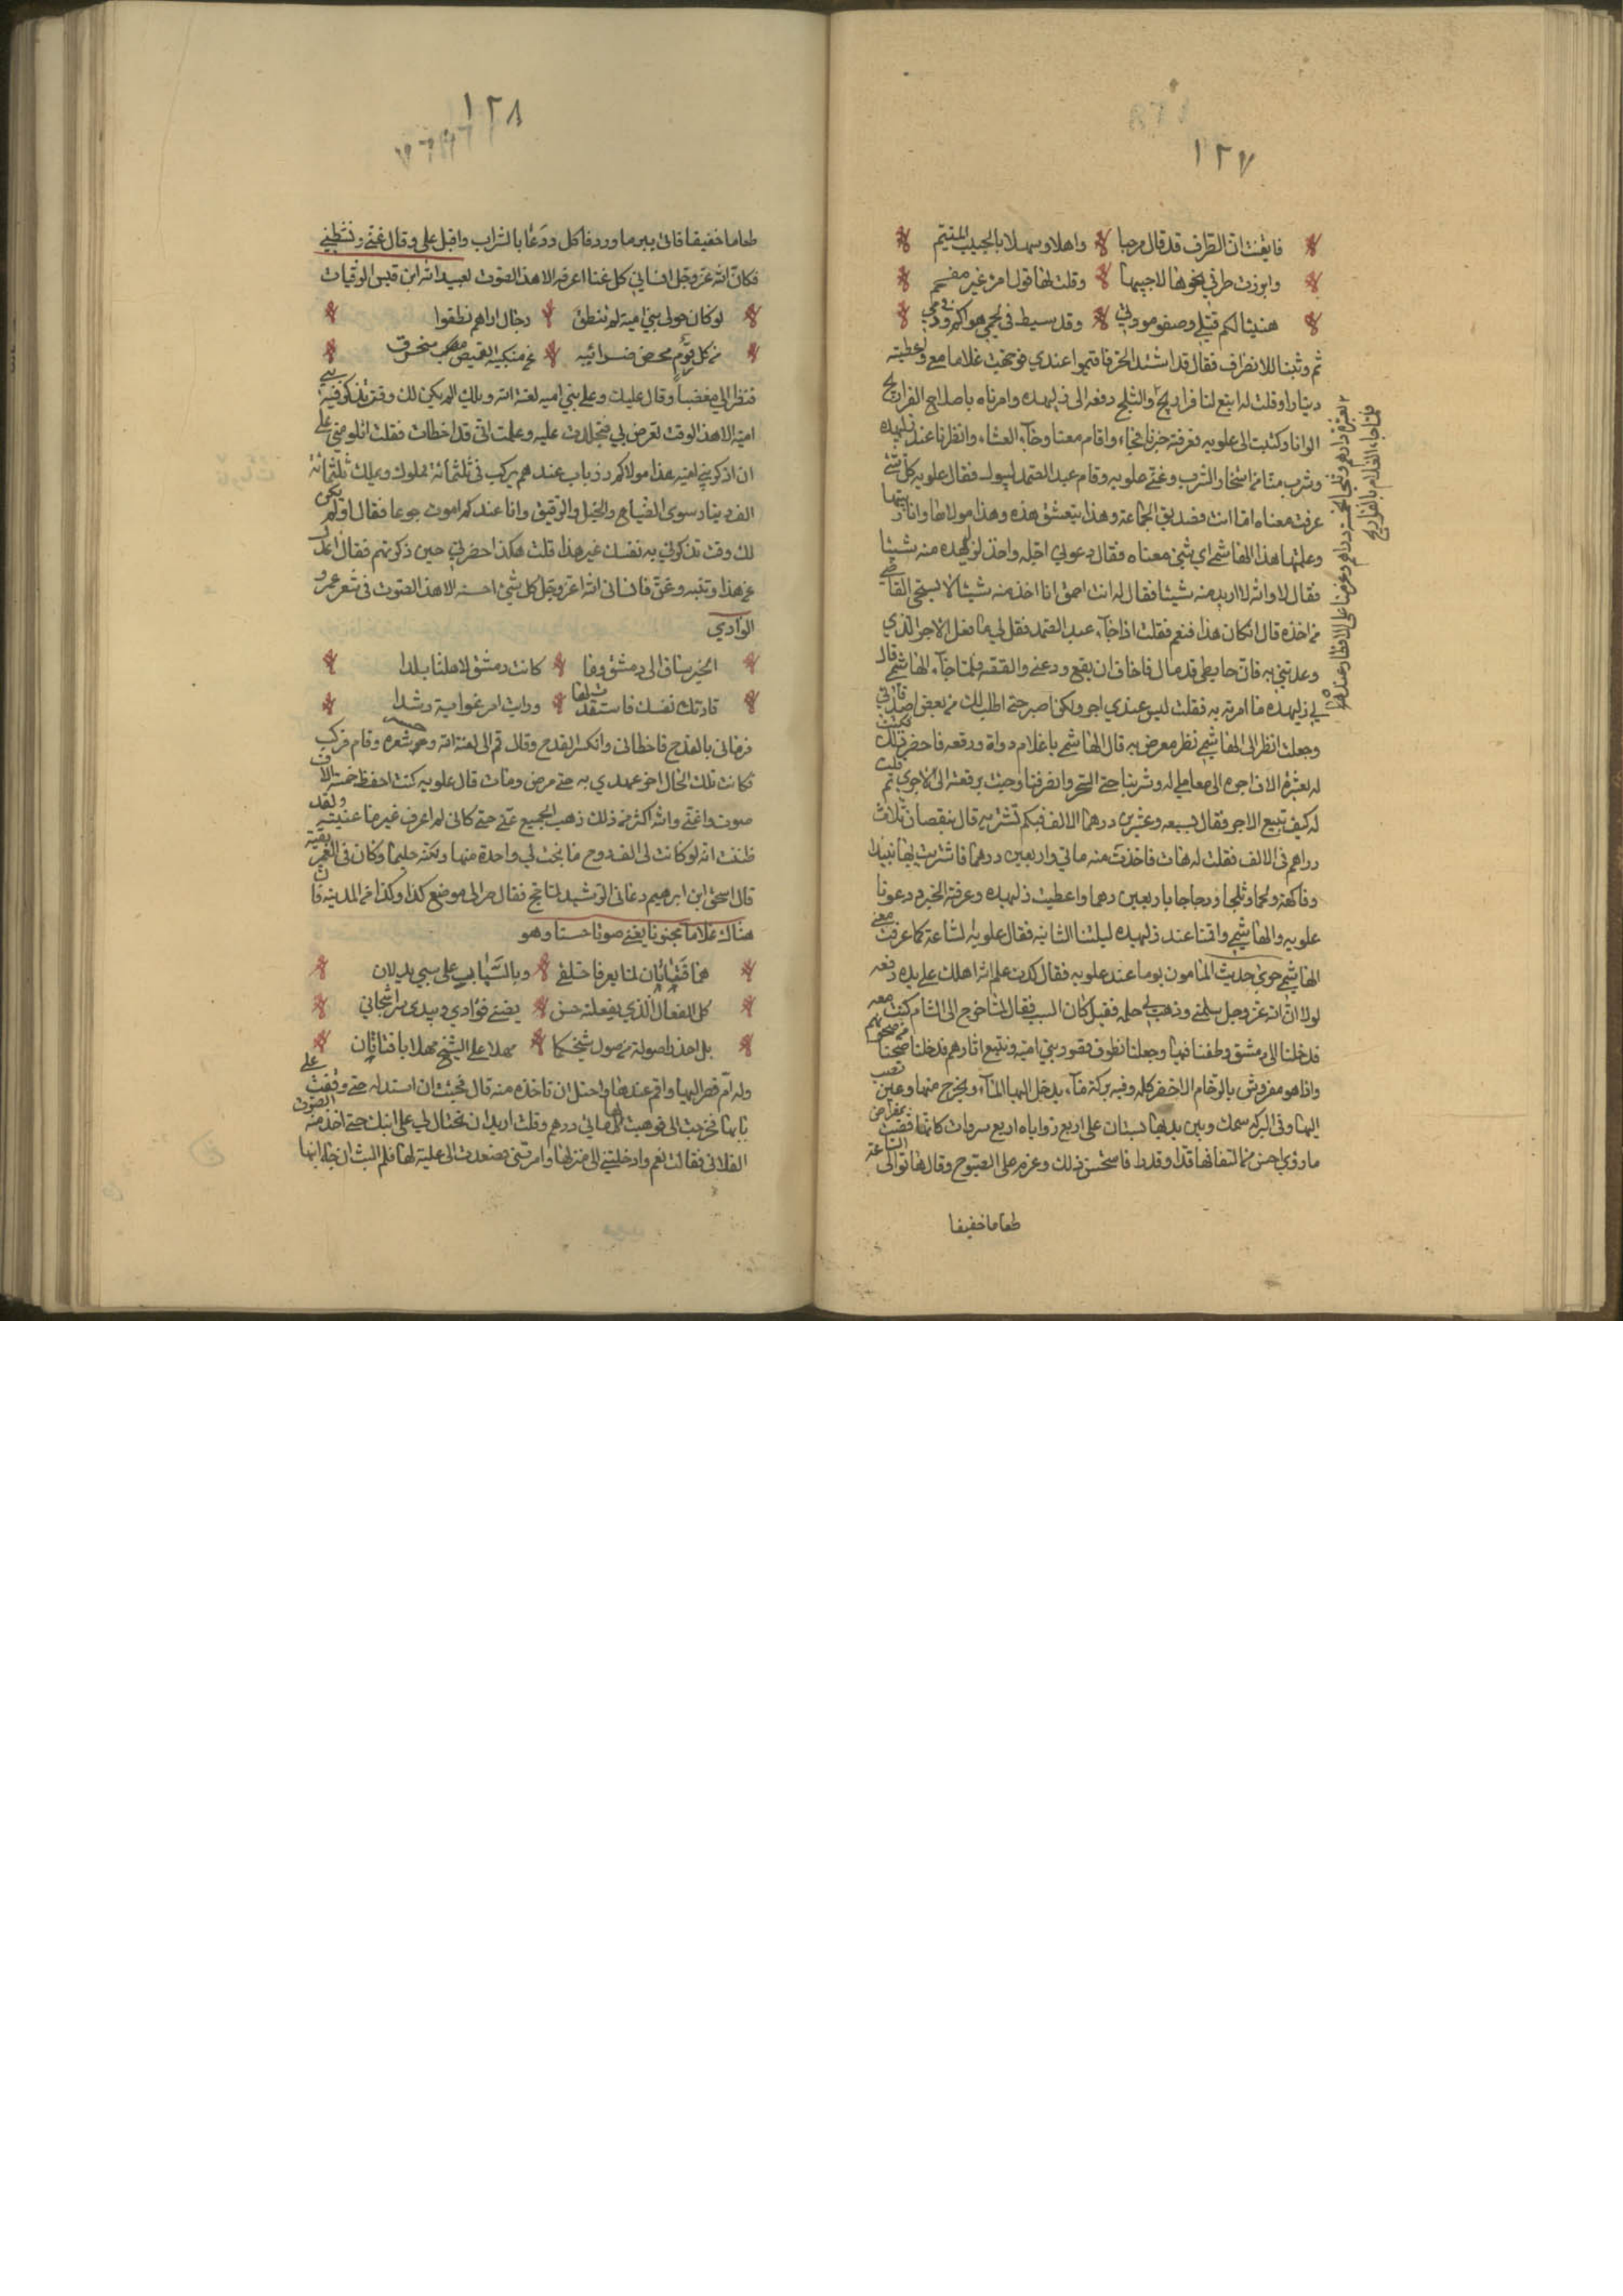 ١٢٧
فايقنت ان الطرف قد قال مرحبا واهلا وسهلا بالحبيب المتيم
وابرزت طرفي نحوها لاجيبها وقلت لها قول امرء غير مفحم
هنيئا لكم قتلي وصفو مودتي وقد سيط في لحمي هواكم وفي دمي
ثم وثبنا للانصراف فقال قد اشتد الحر فاقيموا عندي فوجهت غلاما معي واعطيته
دينارا وقلت له ابتع لنا فراريج والثلج دفعه الى زلبهده وامرناه باصلاح الفراريج
الوانا وكتبت الى علويه فعرفته خبرنا فجاء واقام معنا وجآء العشاء وافطرنا عند زلبهده
وشرب منا من استخار الشرب وغنى علويه وقام عبد الصمد ليبول فقال علويه كل شئ
عرفت معناه اما انت فصديق الجماعة وهذا يتعشق هذه وهذا مولاها وانا ربيتها
وعلمتها هذا الهاشمي اي شئ معناه فقال دعوني احيله واخذ لزلبهده منه شيئا
فقال لا والله لا اريد منه شيئا فقال له انت احمق انا اخذ منه شيئا لا يستحي القاضي
من اخذه قال ان كان هذا فنعم فقلت اذا جآء عبد الصمد فقل لي ما فعل الاجر الذي
وعدتني به فان حايطي قد مال فاخاف ان يقع ودعني والقصه فلما جآء الهاشمي قال
لي زلبهده ما امرته به فقلت ليس عندي اجر ولكن اصبر حتى اطلب لك من بعض اصدقائي
وجعلت انظر الى الهاشمي نظر معرض به قال الهاشمي يا غلام دواة ورقعه فاحضر ذلك فكتب
له بعشرة الاف اجره الى معاملي له وشربنا حتى السحر وانصرفنا وجئت برقعته الى الاجري ثم قلت
له كيف تبيع الاجر فقال بسبعه وعشرين درهما الالف فبكم تشتريه قال بنقصان ثلاث
دراهم في الالف فقلت له هات فاخذت منه مائتي واربعين درهما فاشتريت بها نبيذا
وفاكهة ولحما وثلجا ودجاجا باربعين درهما واعطيت زلبهده وعرفته الخبر ودعونا
علويه والهاشمي واقمنا عند زلبهده ليلتنا الثانيه فقال علويه الساعة كما عرفت معنى
الهاشمي جرى حديث المامون يوما عند علويه فقال كدت علم الله اهلك على يده دفعه
لولا ان الله عز وجل سلمني وذهب لي حلمه فقيل كان السبب فقال لما خرج الى الشام كنت معه
فدخلنا الى دمشق وطفنا فيها وجعلنا نطوف قصور بني اميه ونتبع اثارهم فدخلنا صحنا من صحونهم
واذا هو مفروش بالرخام الاخضر كله وفيه بركة مآء يدخل اليها المآء ويخرج منها وعين تصب
اليها وفي البركه سمك وبين يديها بستان على اربع زواياه اربع سروات كانما قصت بمقراض
ما رؤي احسن من التفافها قدا وقدرا فاستحسن ذلك وعزم على الصبوح وقال هاتوا لي الساعة
طعاما خفيفا
فلما جاء الغلام بالفراريج
١٢٨
طعاما خفيفا فاتى ببزماورد فاكل ودعا بالشراب واقبل علي وقال غنني ونشطني
فكان الله عز وجل انساني كل غنا اعرفه الا هذا الصوت لعبيد الله ابن قيس الرقيات
لو كان حولي بني امية لم تنطق رجال اراهم نطقوا
من كل قرم محض ضرائبه عن منكبيه القميص منخرق
فنظر الي مغضبا وقال عليك وعلى بني اميه لعنة الله ويلك الم يكن لك وقت تذكر فيه بني
اميه الا هذا الوقت تعرض بي فتجلدت عليه وعلمت اني قد اخطات فقلت اتلومني على
ان اذكر بني اميه هذا مولاكم زرياب عندهم يركب في ثلثمائة مملوك ويملك ثلثمائة
الف دينار سوى الضياع والخيل والرقيق وانا عندكم اموت جوعا فقال او لم يكن
لك وقت تذكرني به نفسك غير هذا قلت هكذا حضرني حين ذكرتهم فقال اعدل
عن هذا وتنبه وغن فانساني الله عز وجل كل شئ احسنه الا هذا الصوت في شعر عمرو
الوادي
الحين ساق الى دمشق وما كانت دمشق لاهلنا بلدا
قادتك نفسك فاستقدت لها ورايت امر غواية رشدا
فرماني بالقدح فاخطاني وانكسر القدح وقال قم الى لعنة الله وحر سقره وقام فركب
فكانت تلك الحال اخر عهدي به حتى مرض ومات قال علويه كنت احفظ خمسة الاف
صوت واغني والله اكثر من ذلك ذهب الجميع عني حتى كاني لم اعرف غير ما غنيته ولقد
ظننت انه لو كانت لي الف روح ما نجت لي واحدة منها ولكنه حليما وكان في العمر بقيه
قال اسحق ابن ابرهيم دعاني الرشيد لما حج فقال صر الى موضع كذا وكذا من المدينه فان
هناك غلاما مجنونا يغني صوتا حسنا وهو
هما فتاتان لما يعرفا خلقي وبالشباب على شيبي يدلان
كل الفعال الذي يفعلنه حسن يضني فؤادي ويبدي سر اشجاني
بل احذرا صولة من صول شيخكما مهلا على الشيخ مهلا يا فتاتان
وله ام فصر اليها واقم عندها واحتل ان تاخذه منه قال فجئت ان استدل حتى وقفت على
بابها فخرجت الي فوهبت لها مائتي درهم وقلت اريد ان تحتالي لي على ابنك حتى اخذ منه الصوت
الفلاني فقالت نعم وادخلتني الى منزلها وامرتني فصعدت الى علية لها فلم البث ان جاء ابنها